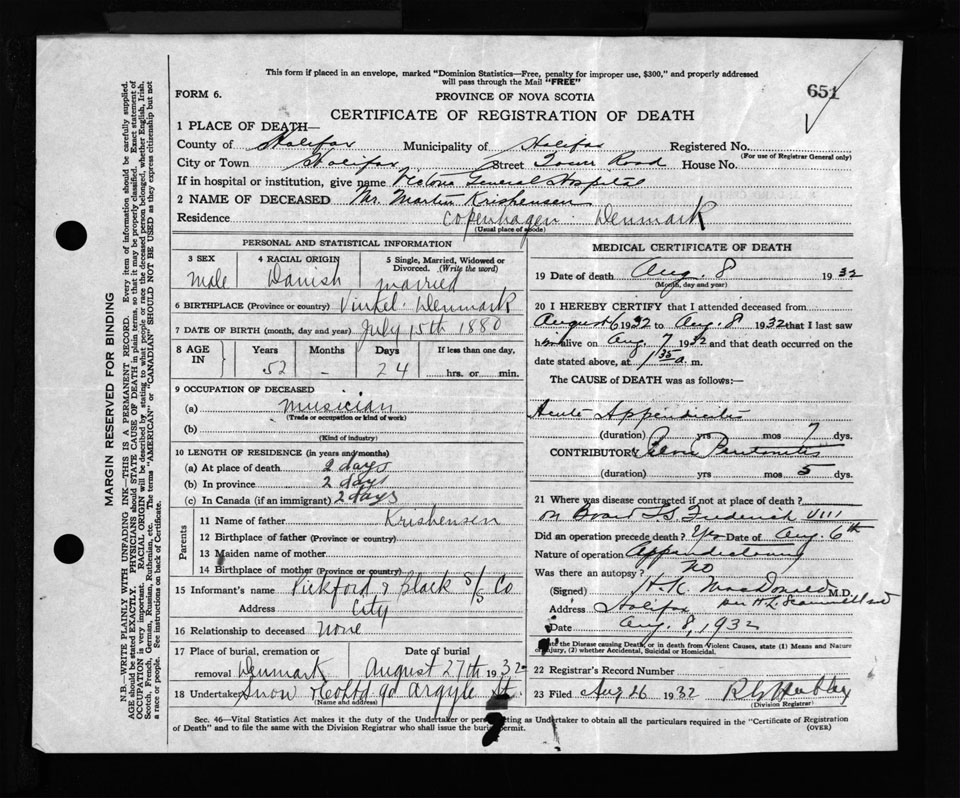 This form if placed in an envelope, marked "Dominion Statistics—Free, penalty for improper use, $300," and properly addressed
will pass through the Mail "FREE"
FORM 6.
PROVINCE OF NOVA SCOTIA
651
CERTIFICATE OF REGISTRATION OF DEATH
1 PLACE OF DEATH—
County of Halifax Municipality of Halifax Registered No.
(For use of Registrar General only)
City or Town Halifax Street Tower Road House No.
If in hospital or institution, give name Victoria General Hospital
2 NAME OF DECEASED Mr. Martin Krishensen
Residence Copenhagen Denmark
(Usual place of abode)
PERSONAL AND STATISTICAL INFORMATION
3 SEX 4 RACIAL ORIGIN 5 Single, Married, Widowed or
Divorced. (Write the word)
Male Danish married
6 BIRTHPLACE (Province or country) Vinkel Denmark
7 DATE OF BIRTH (month, day and year) July 15th 1880
8 AGE IN Years Months Days If less than one day,
52 - 24 hrs. or min.
9 OCCUPATION OF DECEASED
(a) musician
(Trade or occupation or kind of work)
(b)
(Kind of industry)
10 LENGTH OF RESIDENCE (in years and months)
(a) At place of death 2 days
(b) In province 2 days
(c) In Canada (if an immigrant) 2 days
Parents
11 Name of father Krishensen
12 Birthplace of father (Province or country)
13 Maiden name of mother
14 Birthplace of mother (Province or country)
15 Informant's name Pickford & Black S/S Co
Address City
16 Relationship to deceased None
17 Place of burial, cremation or Date of burial
removal Denmark August 27th 1932
18 Undertaker Snow & Co Ltd 90 Argyle St.
(Name and address)
MEDICAL CERTIFICATE OF DEATH
19 Date of death Aug. 8 1932
(Month, day and year)
20 I HEREBY CERTIFY that I attended deceased from
August 6 1932 to Aug. 8 1932 that I last saw
him alive on Aug. 7 1932 and that death occurred on the
date stated above, at 1 35 a. m.
The CAUSE of DEATH was as follows:
Acute Appendicitis
(duration) yrs mos 7 dys.
CONTRIBUTORY Pelvic Peritonitis
(duration) yrs mos 5 dys.
21 Where was disease contracted if not at place of death?
On Board S.S. Frederick VIII
Did an operation precede death? Yes Date of Aug. 6th
Nature of operation Appendectomy
Was there an autopsy? no
(Signed) H.K. MacDonald M.D.
Address Halifax per H.L.
Date Aug. 8, 1932
State the Disease causing Death, or in death from Violent Causes, state (1) Means and Nature
of injury, (2) whether Accidental, Suicidal or Homicidal.
22 Registrar's Record Number
23 Filed Aug 26 1932
(Division Registrar)
Sec. 46—Vital Statistics Act makes it the duty of the Undertaker or person acting as Undertaker to obtain all the particulars required in the "Certificate of Registration
of Death" and to file the same with the Division Registrar who shall issue the burial permit. (OVER)
MARGIN RESERVED FOR BINDING
N.B.—WRITE PLAINLY WITH UNFADING INK—THIS IS A PERMANENT RECORD. Every item of information should be carefully supplied.
AGE should be stated EXACTLY. PHYSICIANS should STATE CAUSE OF DEATH in plain terms, so that it may be properly classified. Exact statement of
OCCUPATION is very important. RACIAL ORIGIN will be described by stating to what people or race the deceased person belonged, whether English, Irish,
Scotch, French, German, Russian, Ruthenian, etc. The terms "AMERICAN" or "CANADIAN" SHOULD NOT BE USED as they express citizenship but not
a race or people. See instructions on back of Certificate.